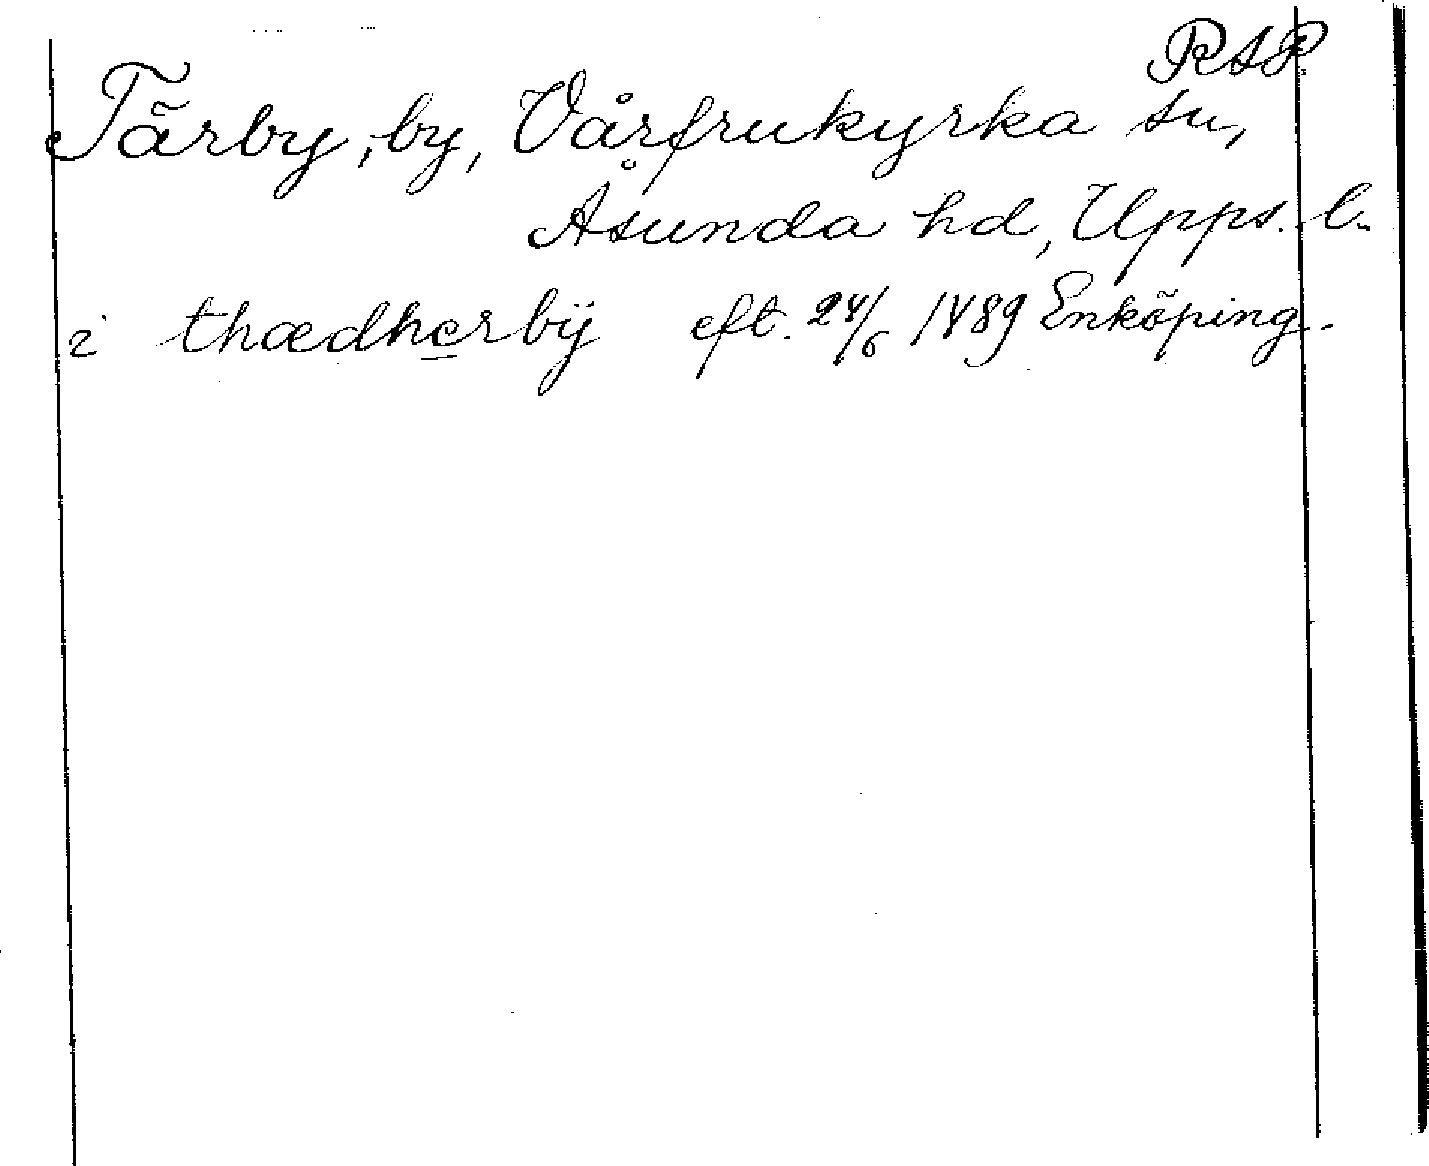 RAP.
Tärby, by, Vårfrukyrka sn,
Åsunda hd, Upps. l.
i thædherbÿ eft. 24/6 1489 Enköping.